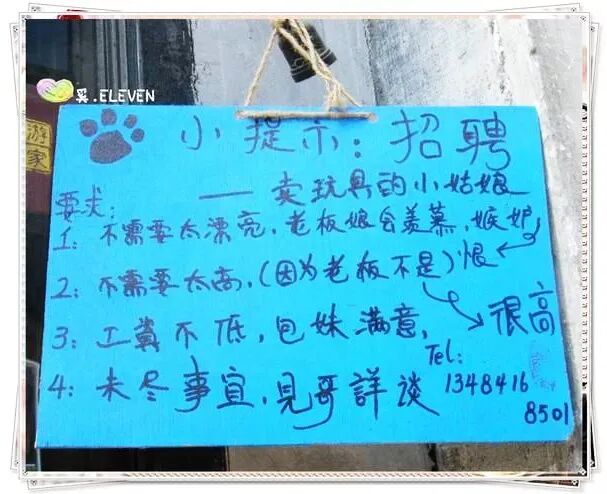 奚.ELEVEN
游
家
小提示：招聘
——卖玩具的小姑娘
要求：
1：不需要太漂亮，老板娘会羡慕，嫉妒
恨
2：不需要太高，(因为老板不是)
很高
3：工资不低，包妹满意，
4：未尽事宜，见哥詳谈
Tel：
1348416
8501